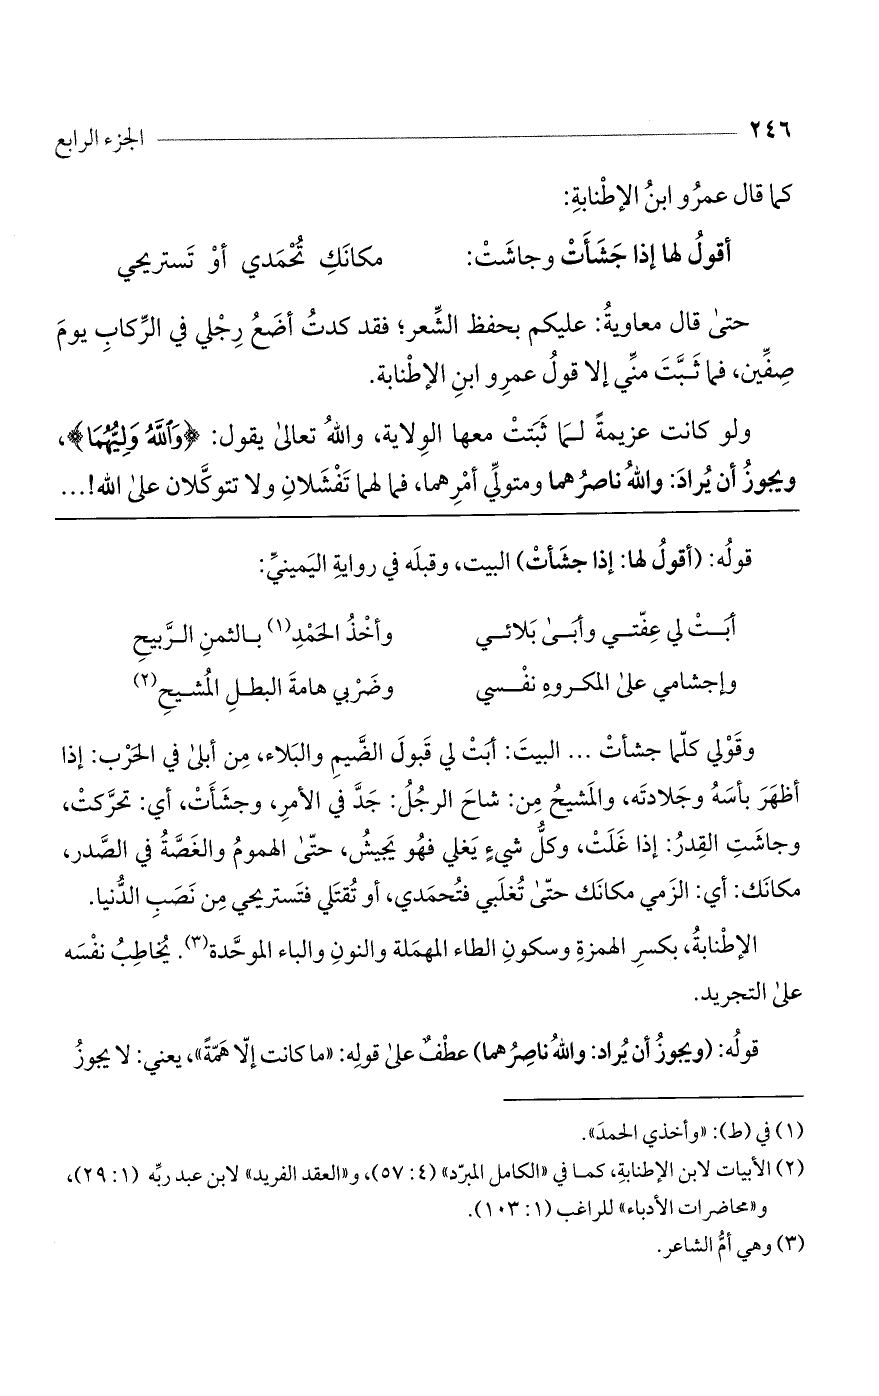 ٢٤٦ الجزء الرابع
كما قال عمرُو ابنُ الإطْنابةِ:
أقولُ لها إذا جَشَأَتْ وجاشَتْ: مكانَكِ تُحْمَدي أوْ تَستريحي
حتىٰ قال معاويةُ: عليكم بحفظ الشِّعر؛ فقد كدتُ أضَعُ رِجْلي في الرِّكابِ يومَ
صِفِّين، فما ثَبَّتَ منِّي إلا قولُ عمرِو ابنِ الإطْنابة.
ولو كانت عزيمةً لـمَا ثَبَتتْ معها الوِلاية، واللهُ تعالىٰ يقول: ﴿وَٱللَّهُ وَلِيُّهُمَا﴾،
ويجوزُ أن يُرادَ: واللهُ ناصرُهما ومتولِّي أمْرِهما، فما لهما تَفْشَلانِ ولا تتوكَّلان علىٰ الله!...
قولُه: (أقولُ لها: إذا جشَأتْ) البيت، وقبلَه في روايةِ اليَمينيِّ:
أبَـتْ لي عِفّتـي وأبَـىٰ بَلائـي وأخْذُ الحَمْدِ(١) بـالثمنِ الـرَّبيحِ
وإجشامي علىٰ المكـروهِ نفْـسي وضَرْبي هامةَ البطـلِ المُشـيحِ(٢)
وقَوْلي كلّما جشأتْ ... البيتَ: أبَتْ لي قَبولَ الضَّيمِ والبَلاء، مِن أبلىٰ في الحَرْب: إذا
أظهَرَ بأسَهُ وجَلادتَه، والمَشيحُ مِن: شاحَ الرجُلُ: جَدَّ في الأمرِ، وجشَأَتْ، أي: تحرَّكتْ،
وجاشَتِ القِدرُ: إذا غَلَتْ، وكلُّ شيءٍ يَغلي فهُو يَجيشُ، حتّىٰ الهمومُ والغَصَّةُ في الصَّدر،
مكانَك: أي: الزَمي مكانَك حتّىٰ تُغلَبي فتُحمَدي، أو تُقتَلي فتَستريحي مِن نَصَبِ الدُّنيا.
الإطْنابةُ، بكسرِ الهمزةِ وسكونِ الطاء المهمَلة والنونِ والباء الموحَّدة(٣). يُخاطِبُ نفْسَه
علىٰ التجريد.
قولُه: (ويجوزُ أن يُراد: واللهُ ناصِرُهما) عطْفٌ علىٰ قولِه: «ما كانت إلّا هَمّةً»، يعني: لا يجوزُ
(١) في (ط): «وأخذي الحمدَ».
(٢) الأبيات لابن الإطنابةِ، كمـا في «الكامل المبرّد» (٤: ٥٧)، و«العقد الفريد» لابن عبد ربِّه (١: ٢٩)،
و«محاضرات الأدباء» للراغب (١: ١٠٣).
(٣) وهي أمُّ الشاعر.